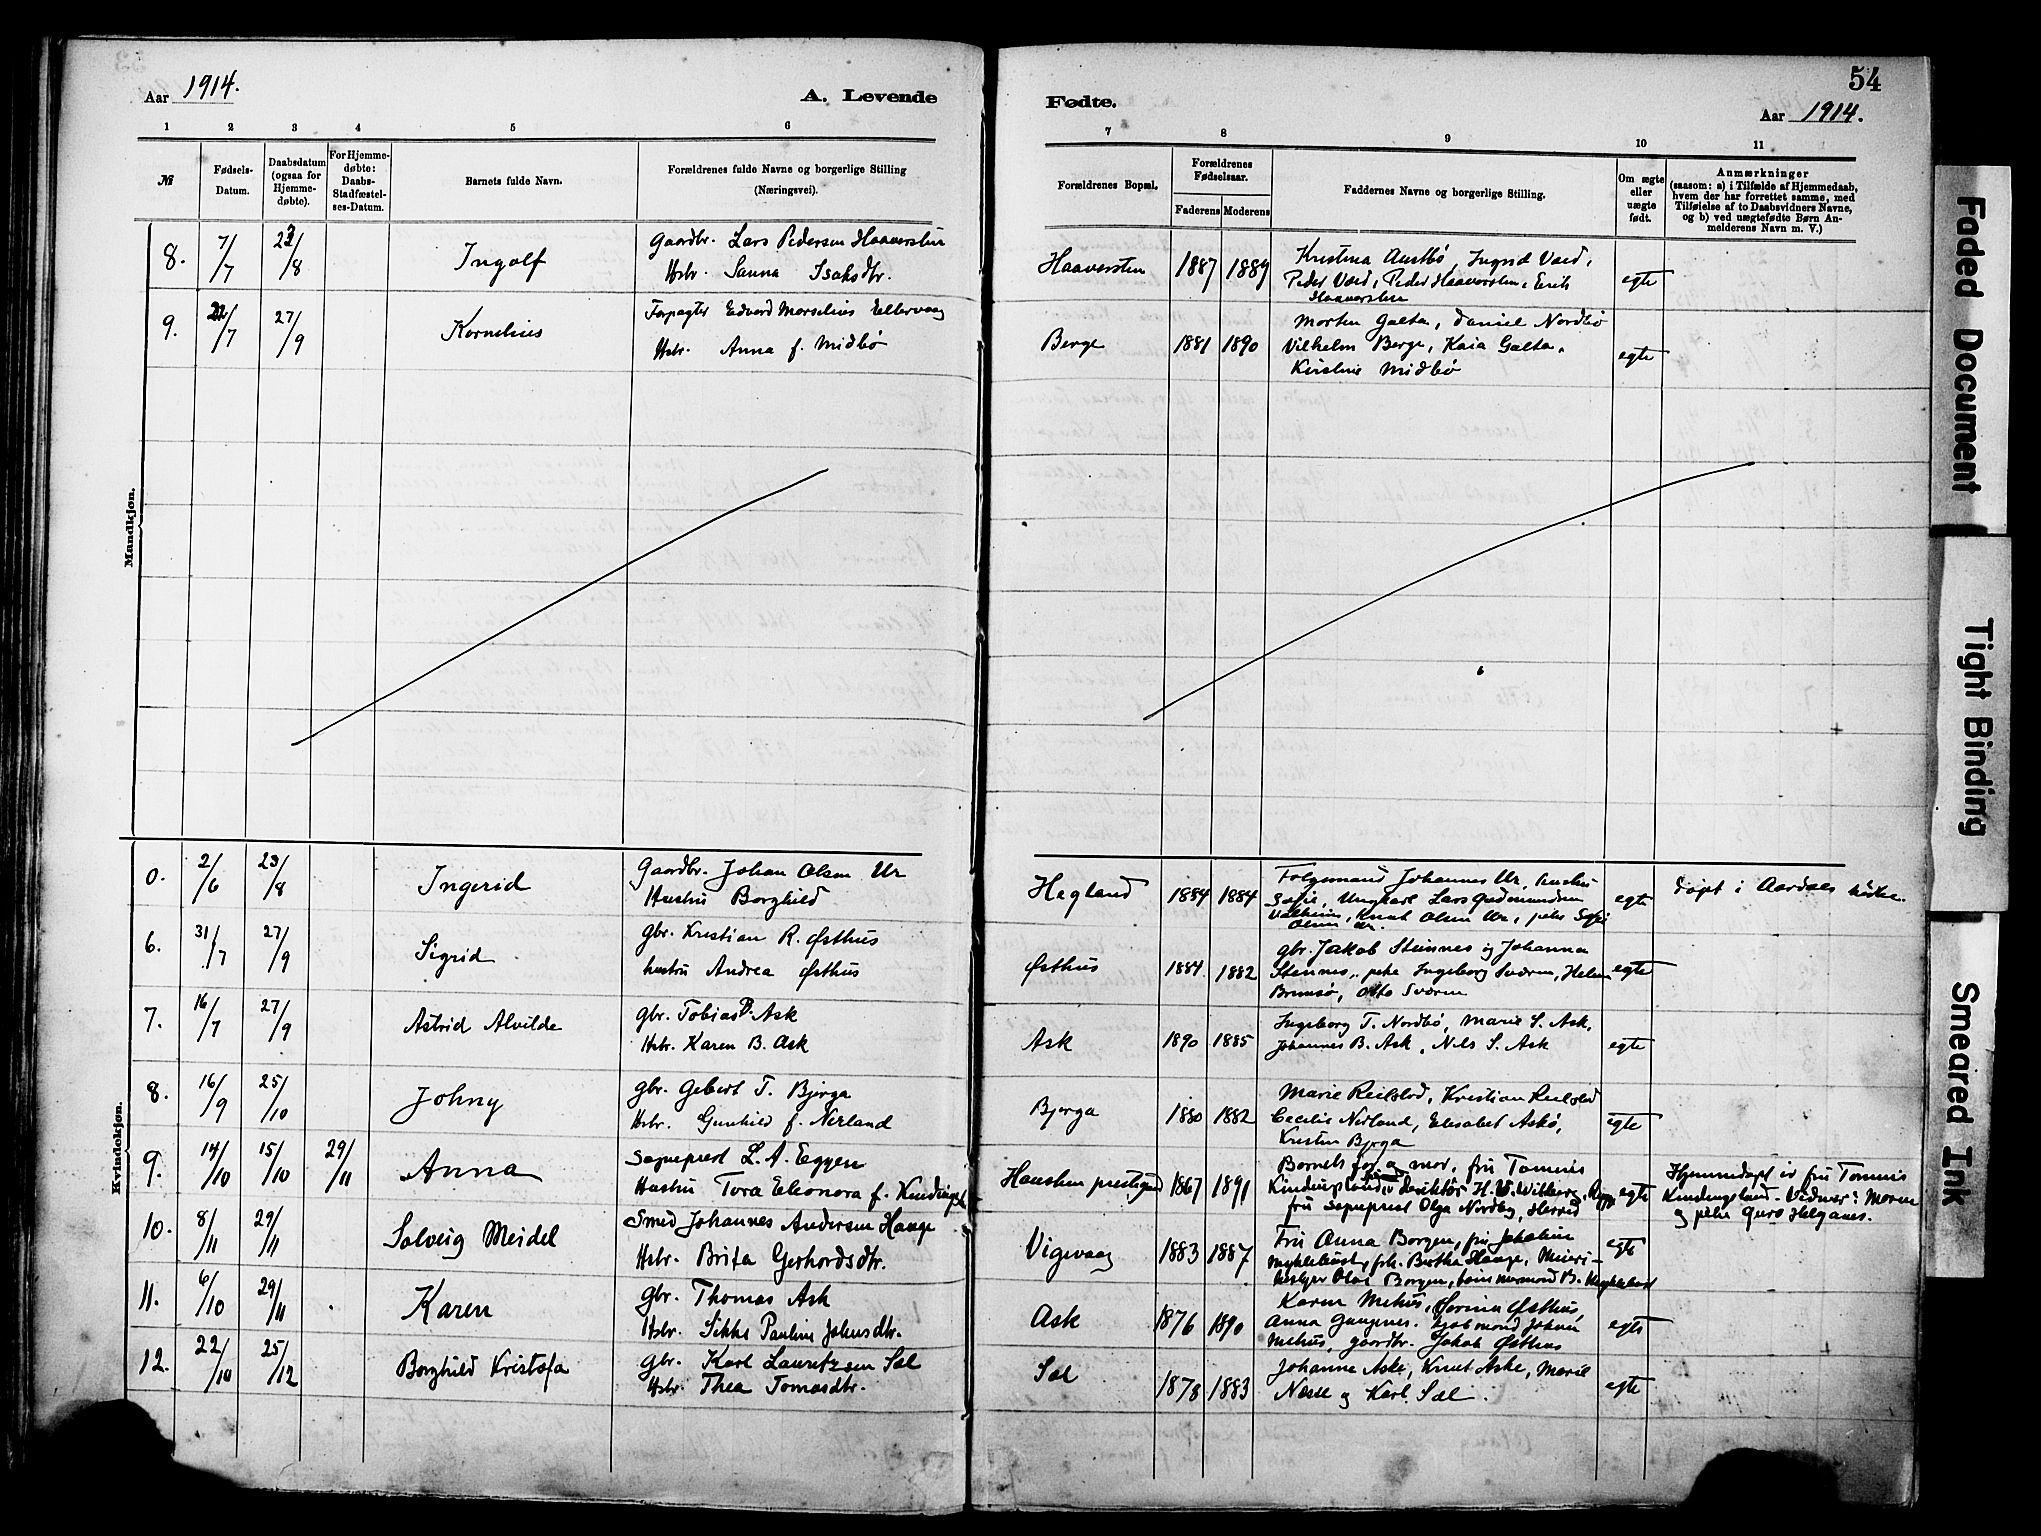 54
Aar 1914. A. Levende
Fødte. Aar 1914.
1 2 3 4 5 6
7 8 9 10 11
№
Fødsels-
Datum.
Daabsdatum
(ogsaa for
Hjemme-
døbte).
For Hjemme-
døbte:
Daabs-
Stadfæstel-
ses-Datum.
Barnets fulde Navn.
Forældrenes fulde Navne og borgerlige Stilling
(Næringsvei).
Forældrenes Bopæl.
Forældrenes
Fødselsaar.
Faderens Moderens
Faddernes Navne og borgerlige Stilling.
Om ægte
eller
uægte
født.
Anmærkninger
(saasom: a) i Tilfælde af Hjemmedaab,
hvem der har forrettet samme, med
Tilføielse af to Daabsvidners Navne,
og b) ved uægtefødte Børn An-
melderens Navn m. V.)
Mandkjøn.
8. 7/7 23/8 Ingolf
Gaardbr. Lars Pedersen Haaversten
Hstr. Sanna Isaksdtr.
Haaversten 1887 1889
Kristina Austbø, Ingrid Voed,
Peder Voed, Peder Haaversten, Erik
Haaversten
egte
9. 22/7 27/9 Kornelius
Forpagter Edvard Marselius Ellervaag
Hstr. Anna f. Midbø
Berge 1881 1890
Morten Galta, Daniel Nordbø
Vilhelm Berge, Kaia Galta,
Kirstine Midbø
egte
Kvindekjøn.
0. 2/6 23/8 Ingerid
Gaardbr. Johan Olsen Ur
Hustru Borghild
Hagland 1884 1884
Folgemand Johannes Ur, hustru
Sofie, Ungkarl Lars Gudmundsen
Valheim, Knut Olsen Ur, pike Sofie
Olsen Ur.
egte
Døpt i Aardals kirke.
6. 31/7 27/9 Sigrid
gbr. Kristian R. Østhus
hustru Andrea Østhus
Østhus 1884. 1882
gbr. Jakob Steinnes og Johanna
Steinnes, pike Ingeborg Sværen, Helen
Brimsø, Otto Sværen
egte
7. 16/7 27/9 Astrid Alvilde
gbr. Tobias B. Ask
Hstr. Karen B. Ask
Ask 1890 1885
Ingeborg T. Nordbø, Marie S. Ask,
Johannes B. Ask, Nils S. Ask
egte
8. 16/9 25/10 Johny
gbr. Gebert T. Bjerga
Hstr. Gunhild f. Nerland
Bjerga 1880 1882
Marie Reilstad, Kristian Reilstad
Cecilie Nerland, Elisabet Askø,
Kristen Bjerga
egte
9. 14/10 15/10 29/11 Anna
Sogneprest L. A. Eggen
Hustru Tora Eleonora f. Kindingst
Hausken prestegard 1867 1891
Barnets far og mor, fru Tomine
fru Sogneprest Olga Nordby,
egte
Hjemmedøpt av fru Tomine
Kindingstad. Vidner: Moren
og pike Guro Helganes.
10. 8/11 29/11 Solveig Meidel
Smed Johannes Andersen Hauge
Hstr. Brita Gerhardsdtr.
Vigevaag 1883 1887
Fru Anna Borgen, fru
Myklebust, frk. Berthe Hauge, Meieri-
bestyrer Olai Borgen, B. Myklebust
egte
11. 6/10 29/11 Karen
gbr. Thomas Ask
Hstr. Sikke Pauline Johnsdtr.
Ask 1876 1890
Karen Mehus, Serina Østhus,
Anna Gangenes. Johan
Mehus, gaardbr. Jakob Østhus
egte
12. 22/10 25/12 Borghild Kristofa
gbr. Karl Lauritzsen Sæl
Hstr. Thea Tomasdtr.
Sæl 1878 1883
Johanne Aske, Knut Aske, Marie
Næsse og Karl Sæl.
egte
Faded Document
Tight Binding
Smeared Ink